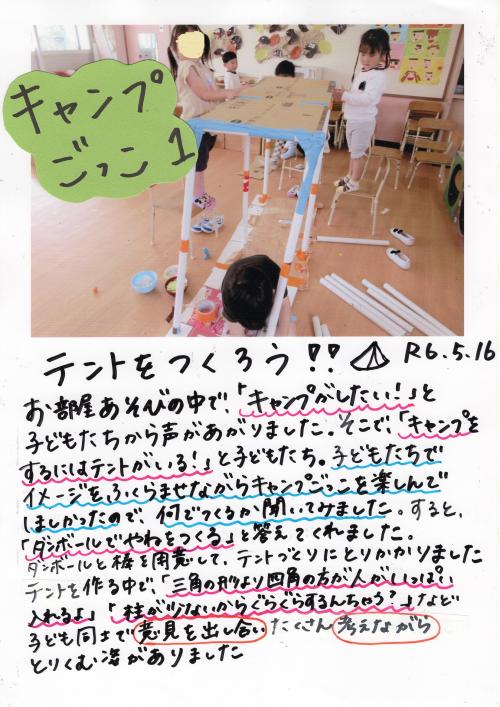 キャンプ
ごっこ1
テントをつくろう!! R6.5.16
お部屋あそびの中で、「キャンプがしたい!」と
子どもたちから声があがりました。そこで、「キャンプを
するにはテントがいる!」と子どもたち。子どもたちで
イメージをふくらませながらキャンプごっこを楽しんで
ほしかったので、何でつくるか聞いてみました。すると、
「ダンボールでやねをつくる」と答えてくれました。
ダンボールと棒を用意して、テントづくりにとりかかりました
テントを作る中で、「三角の形より四角の方が人がいっぱい
入れるよ」「柱が少ないからぐらぐらするんちゃう?」など
子ども同士で意見を出し合いたくさん考えながら
とりくむ姿がありました